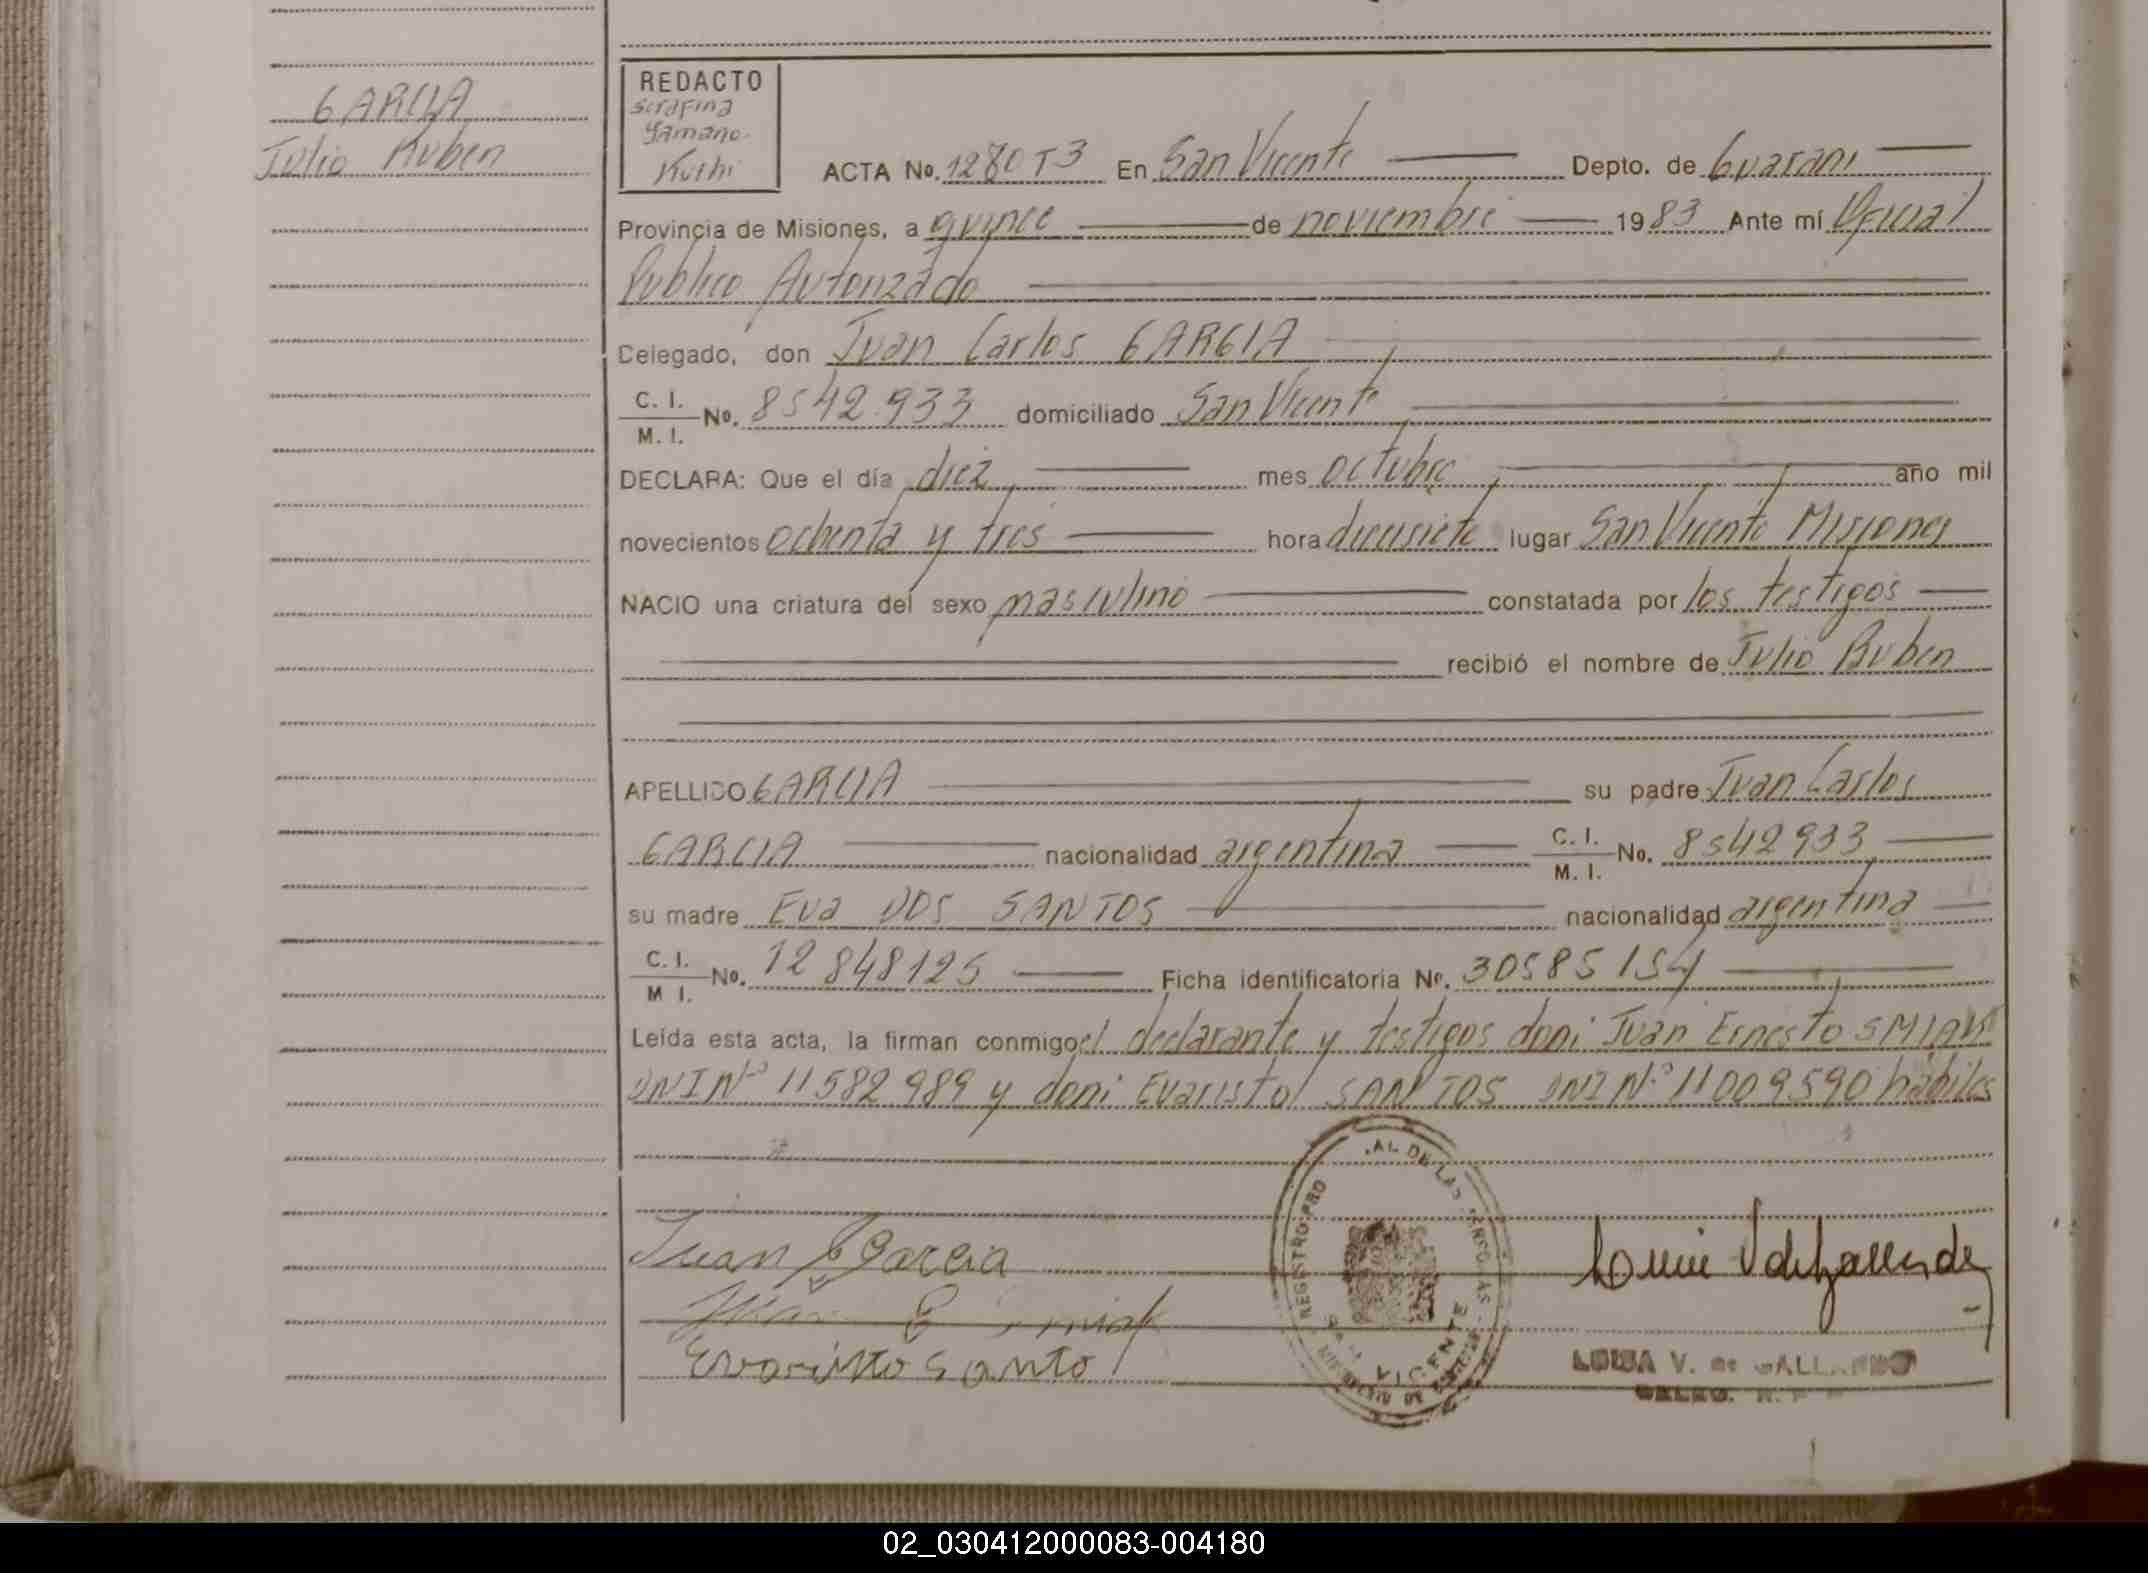 GARCIA
Julio Ruben
REDACTO
Serafina
Yamano
Kuthi
ACTA No. 1280 T3 En San Vicente Depto. de Guarani
Provincia de Misiones, a quince de noviembre 1983 Ante mí Oficial
Publico Autorizado
Delegado, don Juan Carlos GARCIA
C. I.
M. I. No. 8542.933 domiciliado San Vicente
DECLARA: Que el día diez mes octubre año mil
novecientos ochenta y tres hora diecisiete lugar San Vicente Misiones
NACIO una criatura del sexo masculino constatada por los testigos
recibió el nombre de Julio Ruben
APELLIDO GARCIA su padre Juan Carlos
GARCIA nacionalidad argentina C. I. M. I. No. 8542933
su madre Eva DOS SANTOS nacionalidad argentina
C. I.
M I. No. 12 848125 Ficha identificatoria Nº. 30585154
Leída esta acta, la firman conmigo el declarante y testigos don: Juan Ernesto
DNI Nº 11582989 y don: Evaristo SANTOS DNI Nº 11009590 habiles
REGISTRO PRO AL DE LAS
VICENTE
Juan García
Juan E
Evaristo Santo
LUISA V. de GALLARDO
DELEG. R. P.
02_030412000083-004180